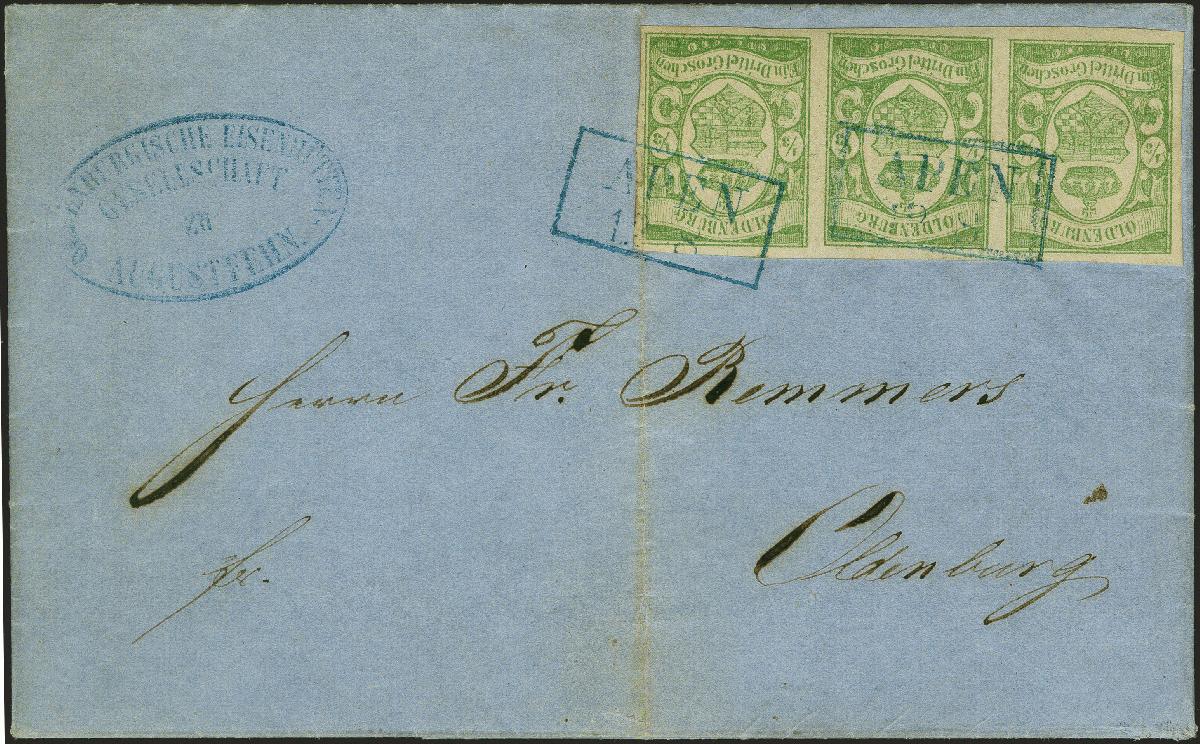 OLDENBURGISCHE EISENHÜTTEN
GESELLSCHAFT
zu
AUGUSTFEHN.
OLDENBURG OLDENBURG OLDENBURG
1/3 1/3 1/3 1/3 1/3 1/3
Ein Drittel Groschen Ein Drittel Groschen Ein Drittel Groschen
APEN
APEN
Herrn Fr. Remmers
fr.
Oldenburg